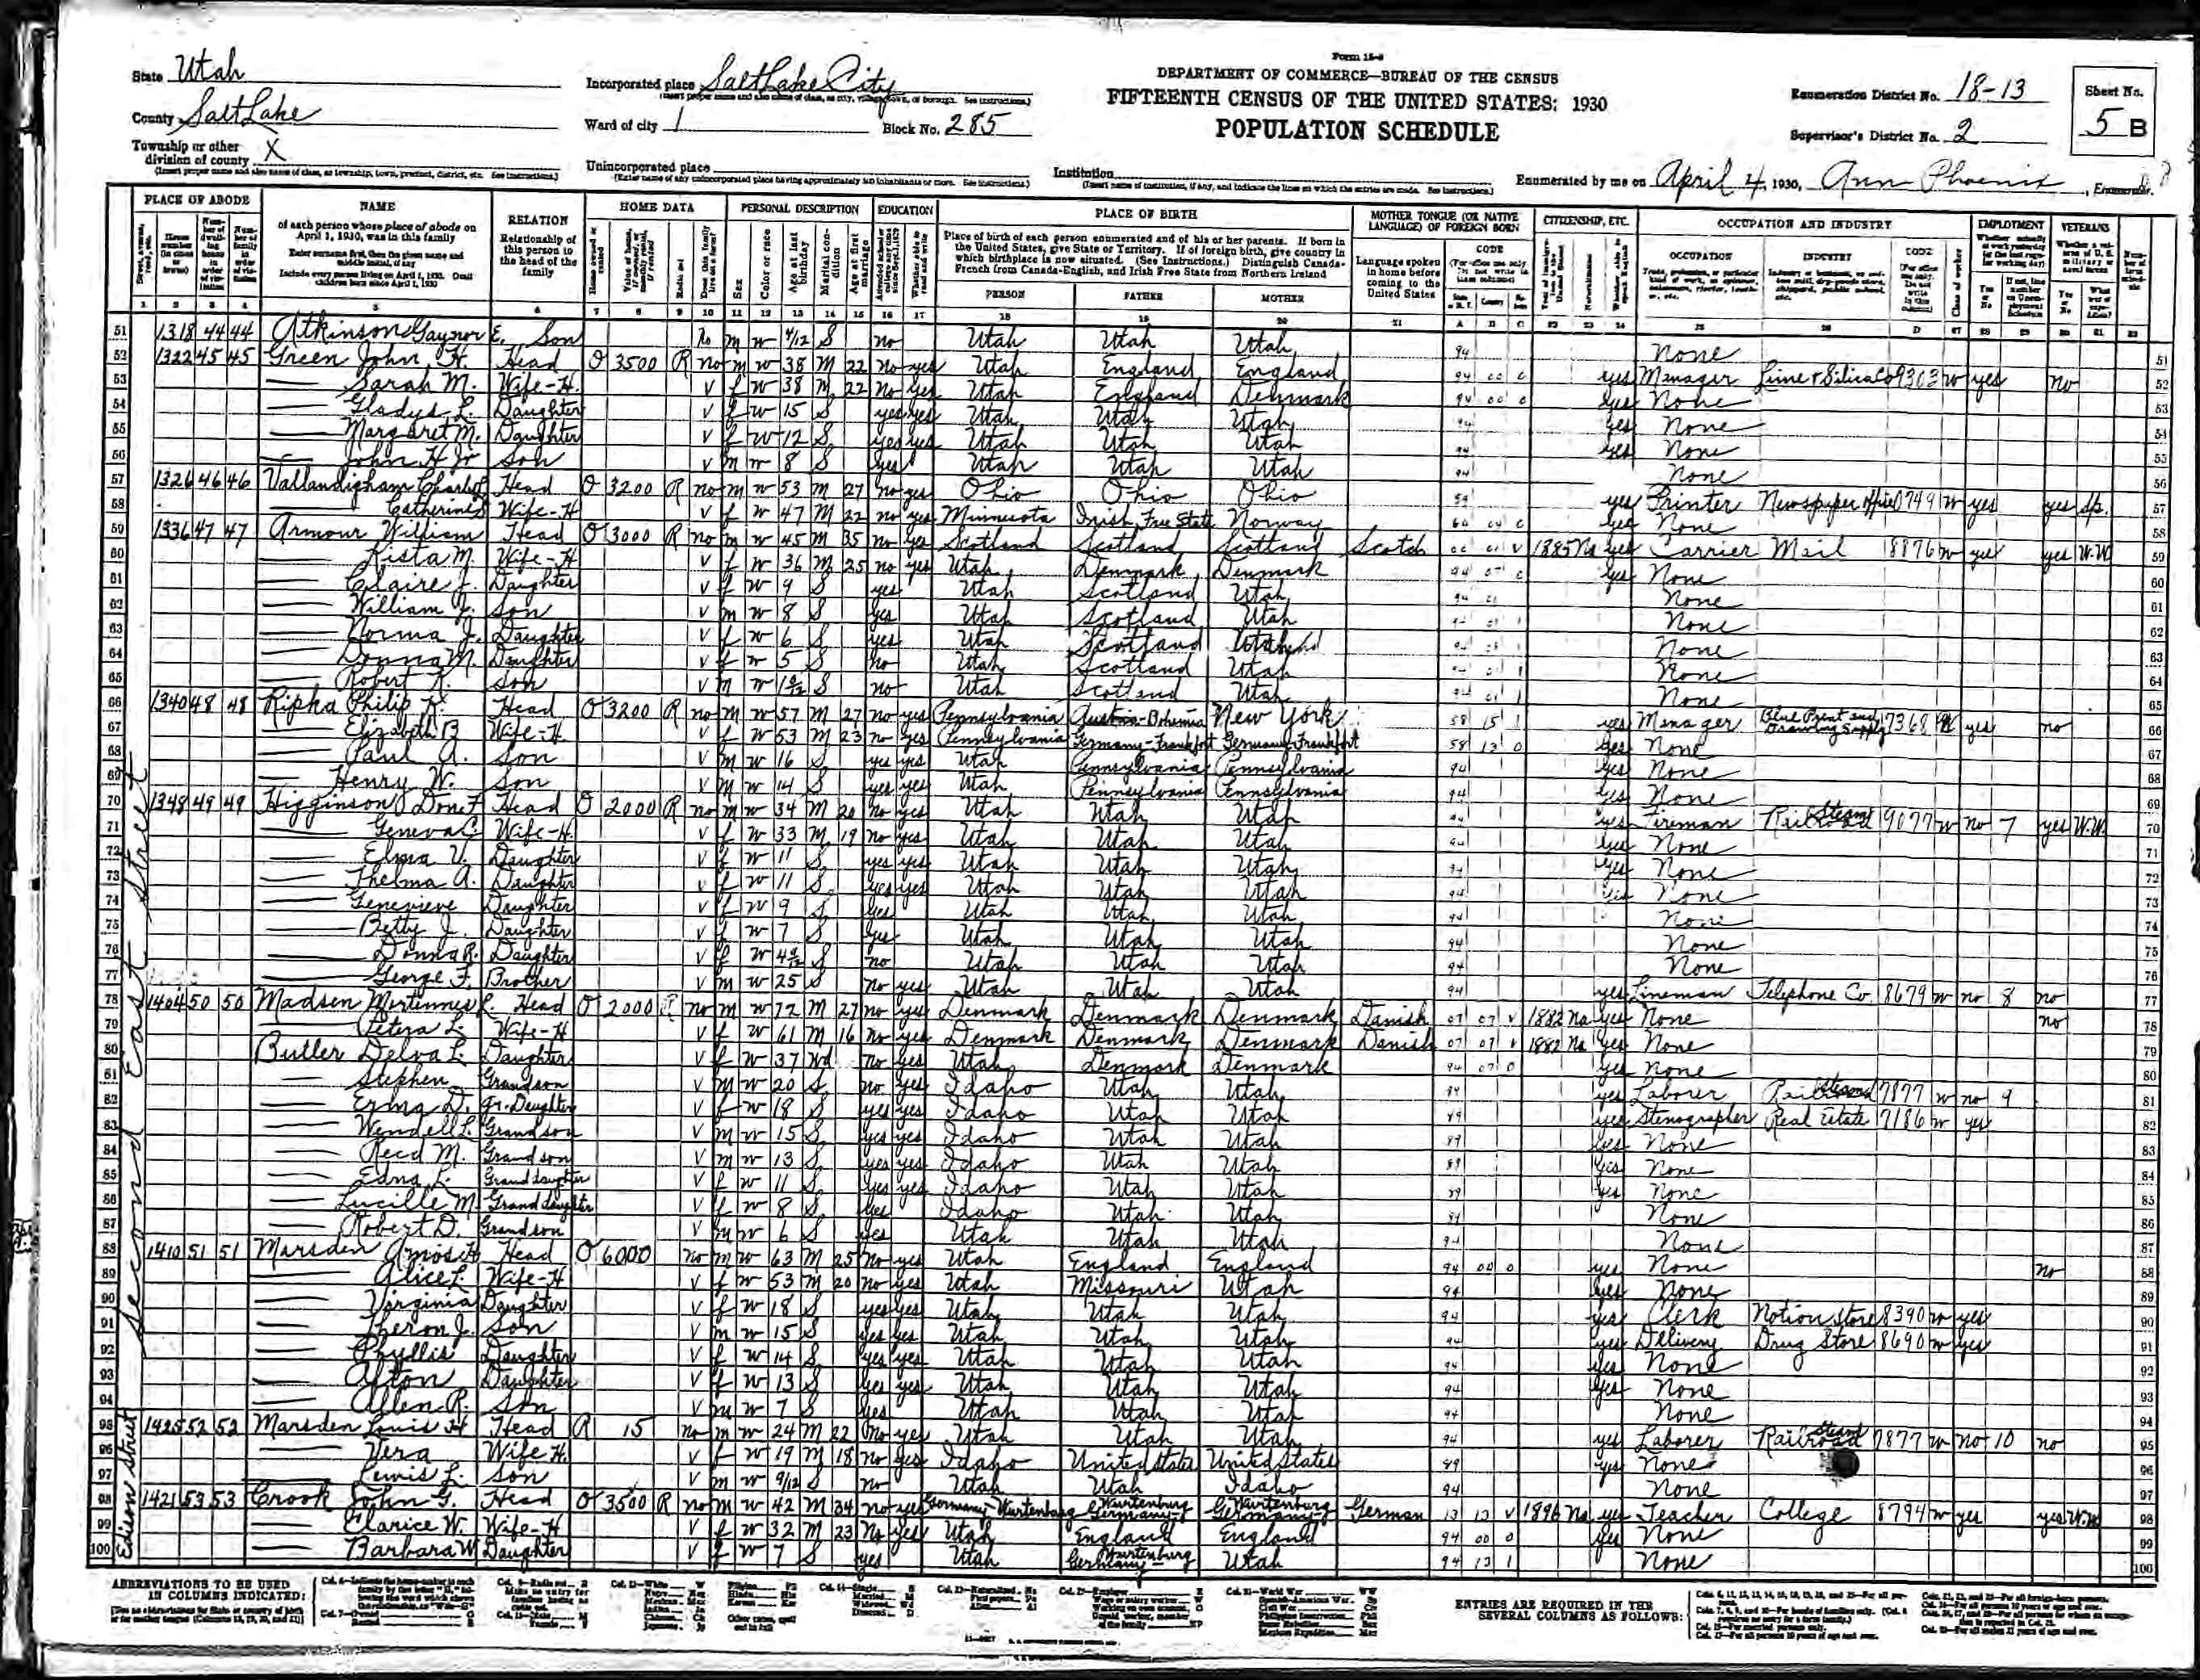 Form 15-6
State Utah
Incorporated place Salt Lake City
DEPARTMENT OF COMMERCE—BUREAU OF THE CENSUS
Enumeration District No. 18-13
Sheet No.
County Salt Lake
FIFTEENTH CENSUS OF THE UNITED STATES: 1930
Ward of city 1 Block No. 285
POPULATION SCHEDULE
Supervisor's District No. 2
5 B
Township or other division of county X
Unincorporated place
Institution
Enumerated by me on April 4, 1930, Ann Phoenix, Enumerator.
PLACE OF ABODE NAME RELATION HOME DATA PERSONAL DESCRIPTION EDUCATION PLACE OF BIRTH MOTHER TONGUE (OR NATIVE LANGUAGE) OF FOREIGN BORN CITIZENSHIP, ETC. OCCUPATION AND INDUSTRY EMPLOYMENT VETERANS
of each person whose place of abode on April 1, 1930, was in this family
Relationship of this person to the head of the family
Place of birth of each person enumerated and of his or her parents. If born in the United States, give State or Territory. If of foreign birth, give country in which birthplace is now situated. (See Instructions.) Distinguish Canada-French from Canada-English, and Irish Free State from Northern Ireland
Language spoken in home before coming to the United States
CODE OCCUPATION INDUSTRY CODE
PERSON FATHER MOTHER
51 1318 44 44 Atkinson Gaynor E. Son No m w 4/12 S no Utah Utah Utah 94 None 51
52 1322 45 45 Green John H. Head O 3500 R no m w 38 M 22 no yes Utah England England 94 00 0 yes Manager Lime & Silica Co 9303 w yes no 52
53 Sarah M. Wife-H. V f w 38 M 22 no yes Utah England Denmark 94 00 0 yes None 53
54 Gladys L. Daughter V f w 15 S yes yes Utah Utah Utah 94 yes None 54
55 Margaret M. Daughter V f w 12 S yes yes Utah Utah Utah 94 yes None 55
56 John H Jr Son V m w 8 S yes Utah Utah Utah 94 None 56
57 1326 46 46 Vallandigham Charles Head O 3200 R no m w 53 M 27 no yes Ohio Ohio Ohio 59 yes Printer Newspaper office 7491 w yes yes Sp. 57
58 Catherine Wife-H V f w 47 M 22 no yes Minnesota Irish Free State Norway yes None 58
59 1336 47 47 Armour William Head O 3000 R no m w 45 M 35 no yes Scotland Scotland Scotland Scotch 1885 Na yes Carrier Mail 8876 w yes yes W.W 59
60 Rista M. Wife-H V f w 36 M 25 no yes Utah Denmark Denmark 94 07 0 yes None 60
61 Claire J. Daughter V f w 9 S yes Utah Scotland Utah 94 01 None 61
62 William J. Son V m w 8 S yes Utah Scotland Utah None 62
63 Norma J. Daughter V f w 6 S yes Utah Scotland Utah None 63
64 Donna M. Daughter V f w 5 S no Utah Scotland Utah None 64
65 Robert R. Son V m w S no Utah Scotland Utah None 65
66 1340 48 48 Ripka Philip R. Head O 3200 R no m w 57 M 27 no yes Pennsylvania Austria-Bohemia New York 58 15 1 yes Manager Blue Print and Drawing Supply 7368 W yes no 66
67 Elizabeth B Wife-H. V f w 53 M 23 no yes Pennsylvania Germany-Frankfort Germany-Frankfort 58 13 0 yes None 67
68 Paul A. Son V m w 16 S yes yes Utah Pennsylvania Pennsylvania 94 yes None 68
69 Henry W. Son V m w 14 S yes yes Utah Pennsylvania Pennsylvania 94 yes None 69
70 1348 49 49 Higginson Done F Head O 2000 R no m w 34 M 20 no yes Utah Utah Utah 94 yes Fireman Steam Railroad 9077 w no 7 yes W.W. 70
71 Geneva C. Wife-H. V f w 33 M 19 no yes Utah Utah Utah 94 yes None 71
72 Elma V. Daughter V f w 11 S yes yes Utah Utah Utah 94 yes None 72
73 Thelma A. Daughter V f w 11 S yes yes Utah Utah Utah 94 yes None 73
74 Genevieve Daughter V f w 9 S yes Utah Utah Utah 94 None 74
75 Betty J. Daughter V f w 7 S yes Utah Utah Utah 94 None 75
76 Donna R. Daughter V f w S no Utah Utah Utah 94 None 76
77 George F. Brother V m w 25 S no yes Utah Utah Utah 94 yes Lineman Telephone Co. 8679 w no 8 no 77
78 1404 50 50 Madsen Mortinnes L. Head O 2000 R no m w 72 M 27 no yes Denmark Denmark Denmark Danish 07 07 V 1882 Na yes None no 78
79 Petera L. Wife-H V f w 61 M 16 no yes Denmark Denmark Denmark Danish 07 07 V 1882 Na yes None 79
80 Butler Delva L. Daughter V f w 37 Wd no yes Utah Denmark Denmark 94 07 0 yes None 80
81 Stephen Grandson V m w 20 S no yes Idaho Utah Utah 89 yes Laborer Steam Railroad 7877 w no 9 81
82 Erma D. Gr. Daughter V f w 18 S yes yes Idaho Utah Utah 89 yes Stenographer Real Estate 7186 w yes 82
83 Wendell L. Grandson V m w 15 S yes yes Idaho Utah Utah 89 yes None 83
84 Reed M. Grandson V m w 13 S yes yes Idaho Utah Utah 89 yes None 84
85 Edna L. Granddaughter V f w 11 S yes yes Idaho Utah Utah 89 yes None 85
86 Lucille M. Granddaughter V f w 8 S yes Idaho Utah Utah 89 None 86
87 Robert D. Grandson V m w 6 S yes Utah Utah Utah 94 None 87
88 1410 51 51 Marsden Amos H Head O 6000 no m w 63 M 25 no yes Utah England England 94 00 0 yes None no 88
89 Alice L. Wife-H V f w 53 M 20 no yes Utah Missouri Utah 94 yes None 89
90 Virginia Daughter V f w 18 S yes yes Utah Utah Utah 94 yes Clerk Notion Store 8390 w yes 90
91 Theron J. Son V m w 15 S yes yes Utah Utah Utah 94 yes Delivery Drug Store 8690 w yes 91
92 Phyllis Daughter V f w 14 S yes yes Utah Utah Utah 94 yes None 92
93 Afton Daughter V f w 13 S yes yes Utah Utah Utah 94 yes None 93
94 Allen R. Son V m w 7 S yes Utah Utah Utah 94 None 94
95 1425 52 52 Marsden Louis H Head R 15 no m w 24 M 22 no yes Utah Utah Utah 94 yes Laborer Steam Railroad 7877 w no 10 no 95
96 Vera Wife H. V f w 19 M 18 no yes Idaho United States United States 89 yes None 96
97 Lewis L. Son V m w 9/12 S no Utah Utah Idaho 94 None 97
98 1421 53 53 Crook John G. Head O 3500 R no m w 42 M 34 no yes Germany-Wurtenburg Wurtenburg Germany Wurtenburg Germany German 13 13 V 1896 Na yes Teacher College 8794 w yes yes W.W 98
99 Clarice W. Wife-H V f w 32 M 23 no yes Utah England England 94 00 0 yes None 99
100 Barbara W Daughter V f w 7 S yes Utah Wurtenburg Germany Utah 94 13 1 None 100
Second East Street
Edison Street
ABBREVIATIONS TO BE USED IN COLUMNS INDICATED:
ENTRIES ARE REQUIRED IN THE SEVERAL COLUMNS AS FOLLOWS: